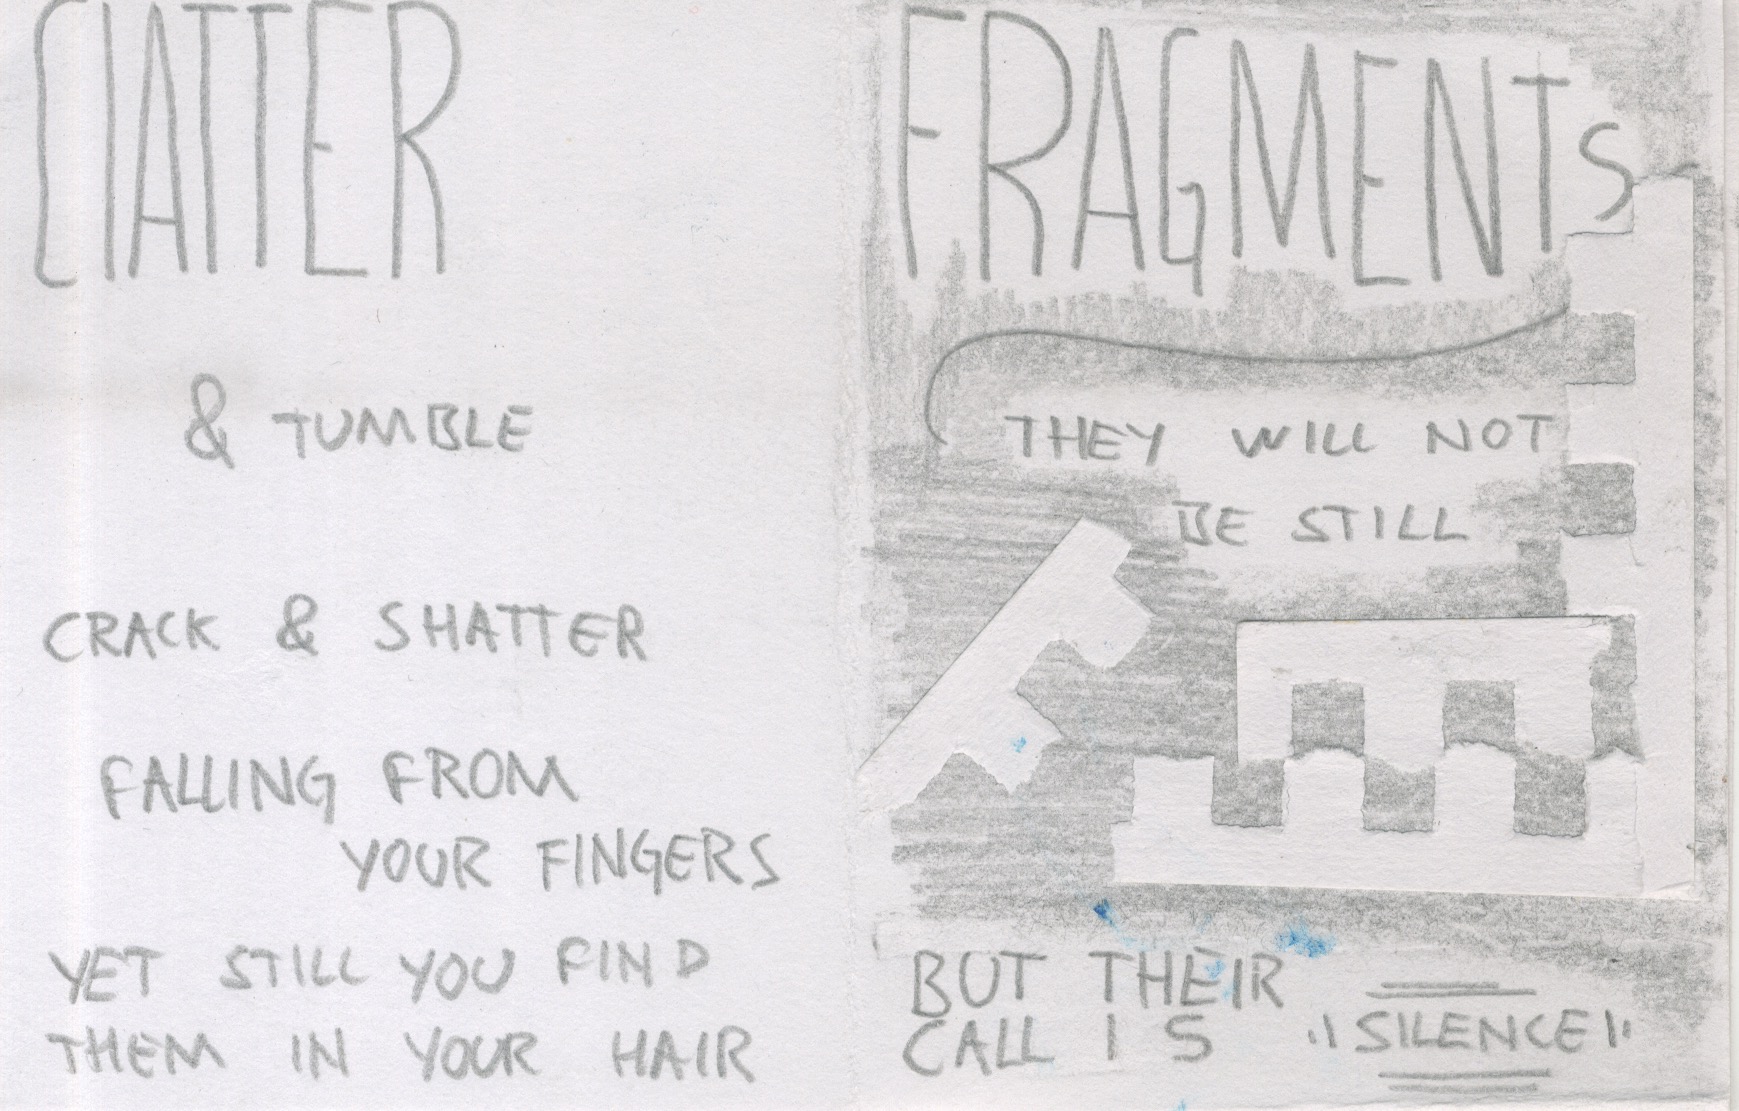 CLATTER
& TUMBLE
CRACK & SHATTER
FALLING FROM
YOUR FINGERS
YET STILL YOU FIND
THEM IN YOUR HAIR
FRAGMENTS
THEY WILL NOT
BE STILL
BUT THEIR
CALL IS "SILENCE"